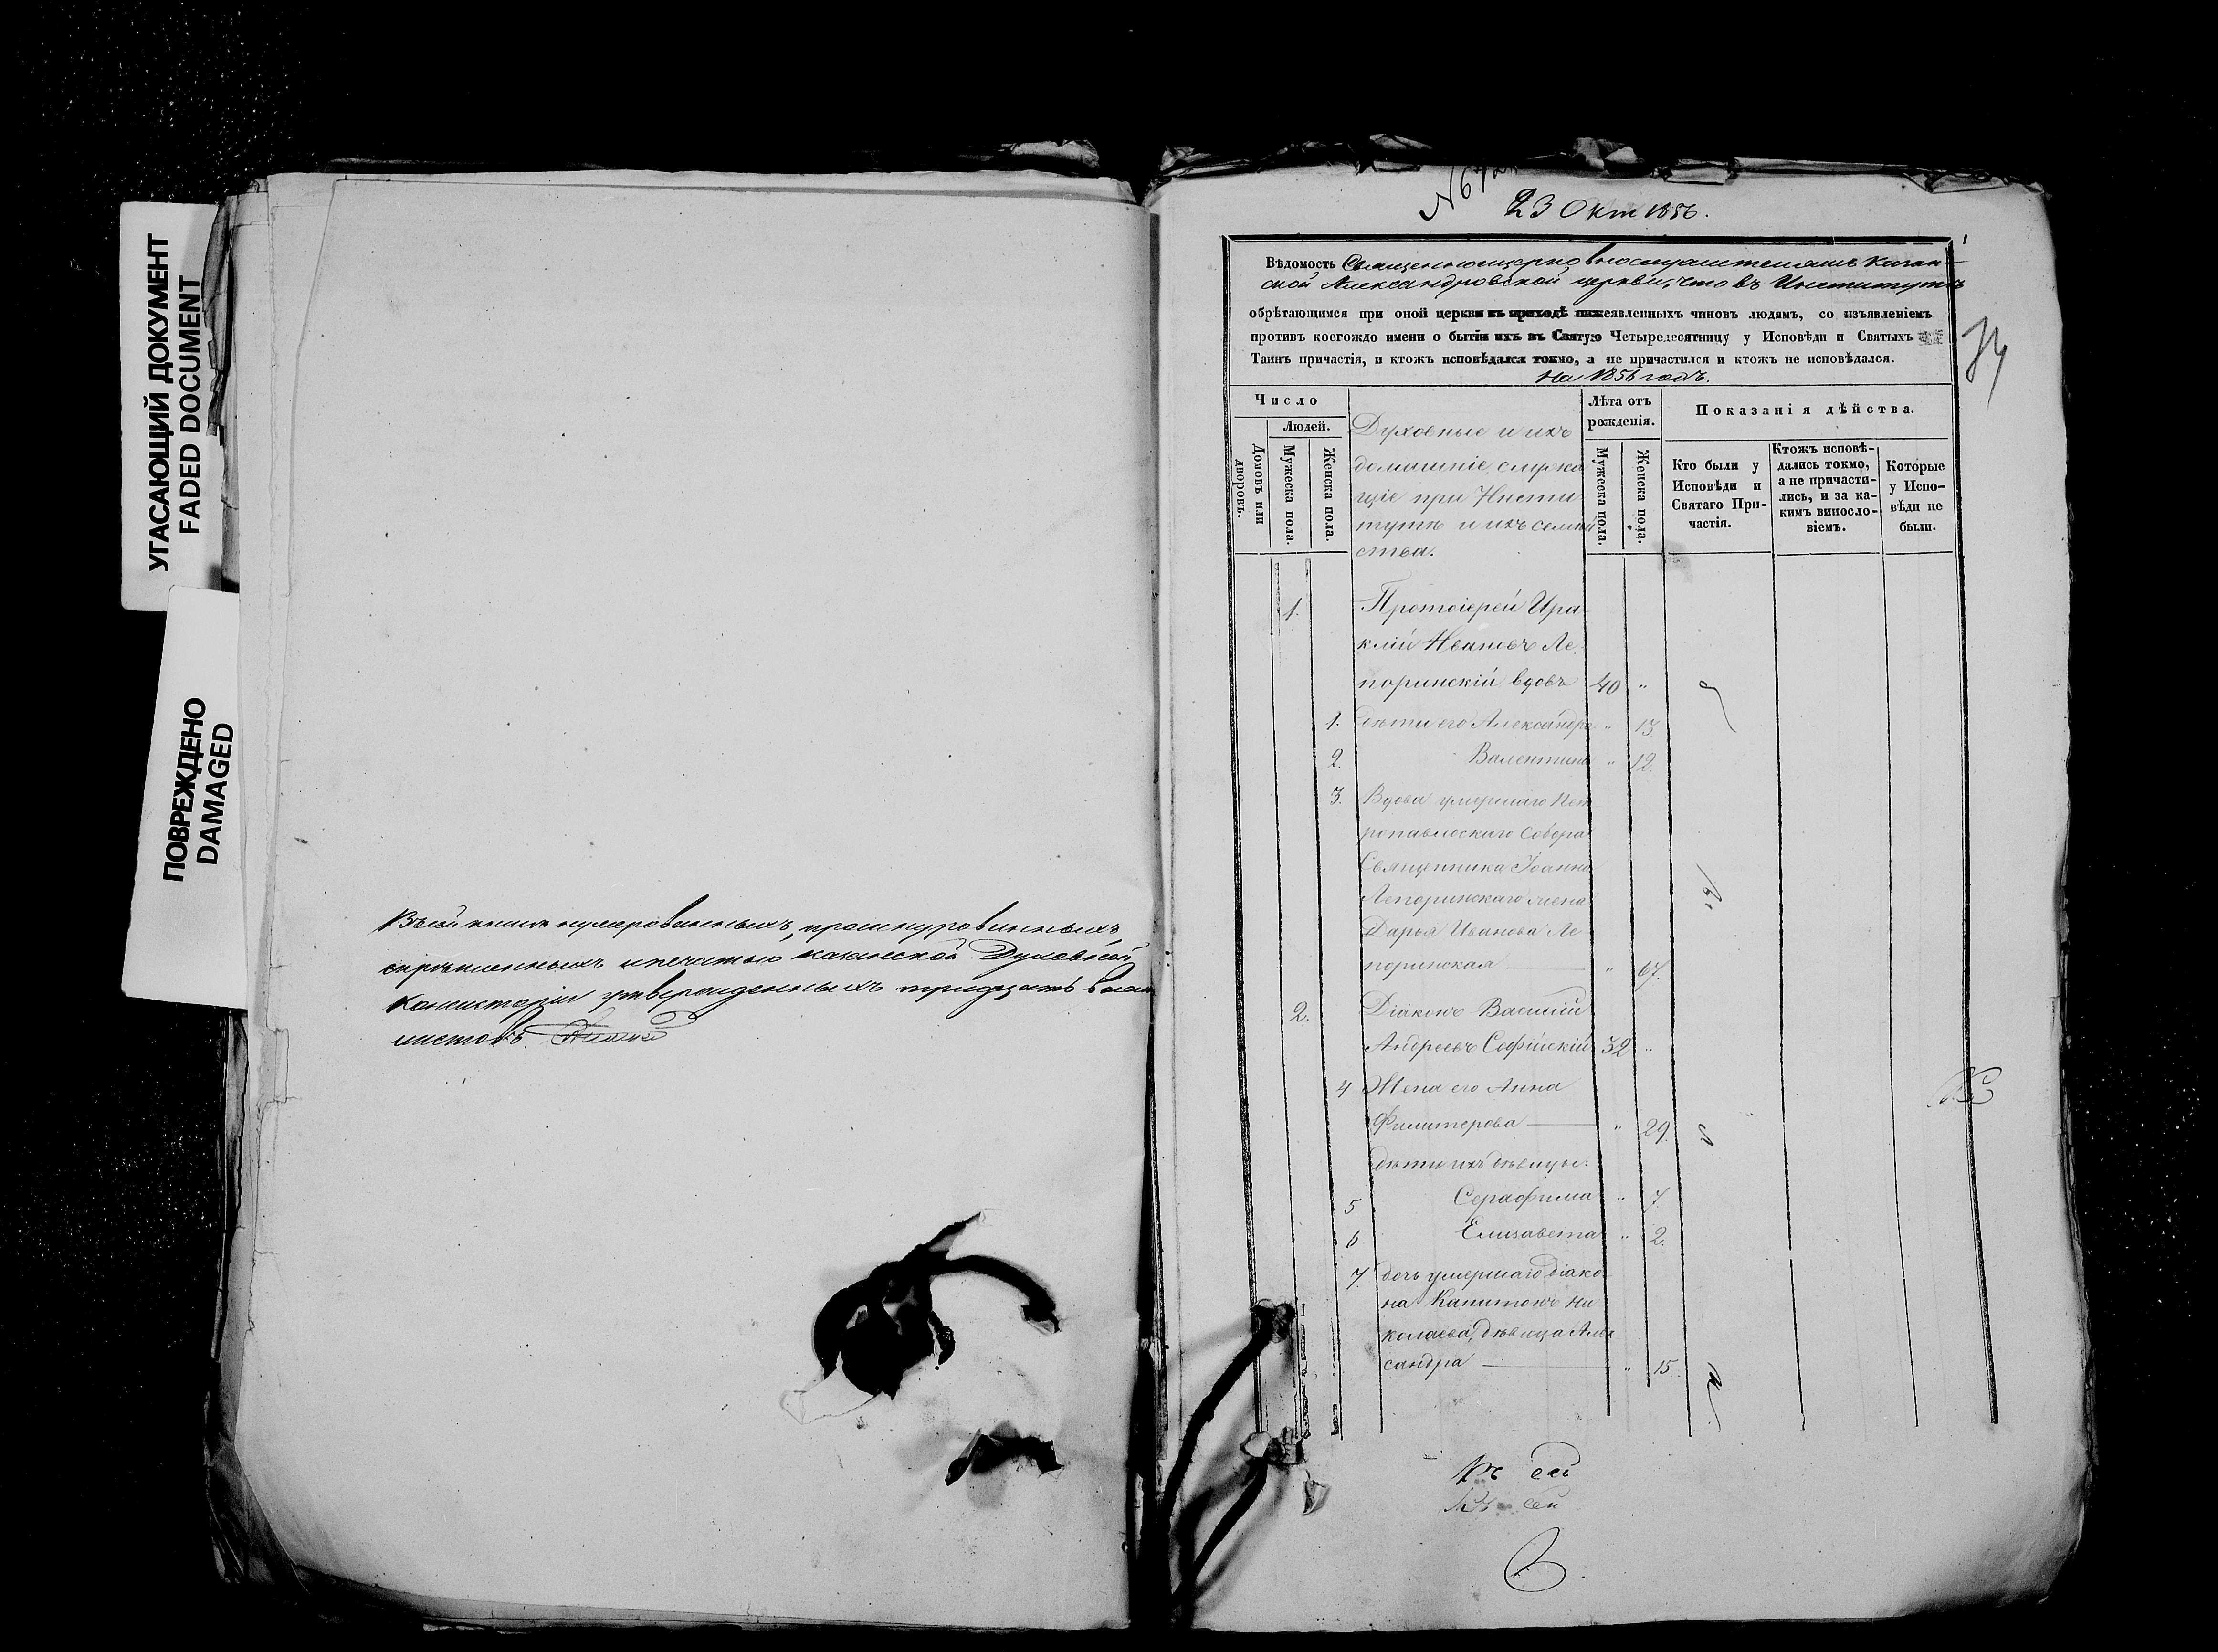 УГАСАЮЩИЙ ДОКУМЕНТ
FADED DOCUMENT
ПОВРЕЖДЕНО
DAMAGED
нумерованныхъ, прошнурованныхъ,
печатью Казанской Духовной
Консисторіи утвержденныхъ тридцать
листовъ.
23 Окт 1856.
Вѣдомость Священноцерковнослужителямъ Казан-
ской Александровской церкви, что въ Институтѣ
обрѣтающимся при оной церкви въ приходѣ нижеявленныхъ чиновъ людямъ, со изъявленіемъ
противъ коегождо имени о бытіи ихъ въ Святую Четыредесятницу у Исповѣди и Святыхъ
Таинъ причастія, и ктожъ исповѣдался токмо, а не причастился и ктожъ не исповѣдался.
на 1856 годъ.
Число
Людей.
Домовъ или дворовъ.
Мужеска пола.
Женска пола.
Духовные и ихъ
домашніе, служа
щіе при Инсти
тутѣ и ихъ семей
ства.
Лѣта отъ
рожденія.
Мужеска пола.
Женска пола.
Показанія дѣйства.
Кто были у
Исповѣди и
Святаго При-
частія.
Ктожъ исповѣ-
дались токмо,
а не причасти-
лись, и за ка-
кимъ виносло-
віемъ.
Которые
у Испо-
вѣди не
были.
1. Протоіерей Ира
клій Ивановъ Ле
поринскій вдовъ 40 "
1. дѣти его Александра " 13
2. Валентина " 12.
3. Вдова умершаго Пет
ропавловскаго Собора
Священника Іоанна
Лепоринскаго жена
Дарья Иванова Ле
поринская — " 67.
2. Діаконъ Василій
Андреевъ Софійскій 32 "
4 Жена его Анна
Филитерова — " 29.
дѣти ихъ дѣвицы:
5 Серафима " 7
6 Елизавета " 2.
7. дочь умершаго діако
на Капитонъ Ни
колаева, дѣвица Алек
сандра — " 15.